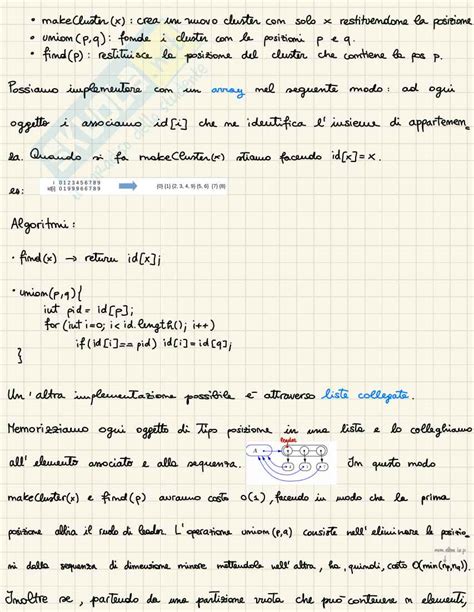 • makeCluster(x) : crea un nuovo cluster con solo x restituendone la posizione
• union(p,q) : fonde i cluster con le posizioni p e q.
• find(p) : restituisce la posizione del cluster che contiene la pos p.
Possiamo implementare con un array nel seguente modo: ad ogni
oggetto i associamo id[i] che ne identifica l'insieme di appartenen
za. Quando si fa makeCluster(x) stiamo facendo id[x]=x.
es: i 0 1 2 3 4 5 6 7 8 9
id[i] 0 1 9 9 9 6 6 7 8 9
{0} {1} {2, 3, 4, 9} {5, 6} {7} {8}
Algoritmi:
• find(x) → return id[x];
• union(p,q){
int pid = id[p];
for (int i=0; i< id.length(); i++)
if (id[i]== pid) id[i]= id[q];
}
Un'altra implementazione possibile è attraverso liste collegate.
Memorizziamo ogni oggetto di tipo posizione in una lista e lo colleghiamo
leader
all'elemento associato e alla sequenza. A In questo modo
makeCluster(x) e find(p) avranno costo O(1), facendo in modo che la prima
posizione abbia il ruolo di leader. L'operazione union(p,q) consiste nell'eliminare le posizio
ni dalla sequenza di dimensione minore mettendole nell'altra, ha, quindi, costo O(min(np,nq)).
Inoltre se, partendo da una partizione vuota che può contenere n elementi,